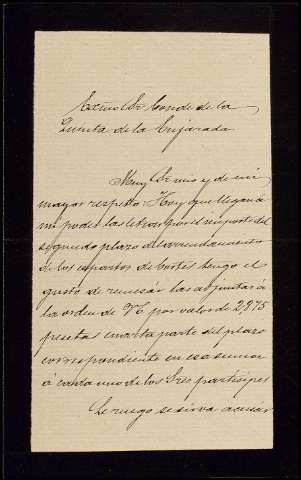 Excmo Sr Conde de la
Quinta de la Enjarada
Muy Sr mio y de mi
mayor respeto: Hoy que llegan á
mi poder las letras por el importe del
segundo plazo del arrendamiento
de los espartos de Cortes tengo el
gusto de remesar las adjuntas á
la orden de V. E. por valor de 2,875
pesetas cuarta parte del plazo
correspondiente en esa suma
á cada uno de los Sres participes
Le ruego se sirva acusar